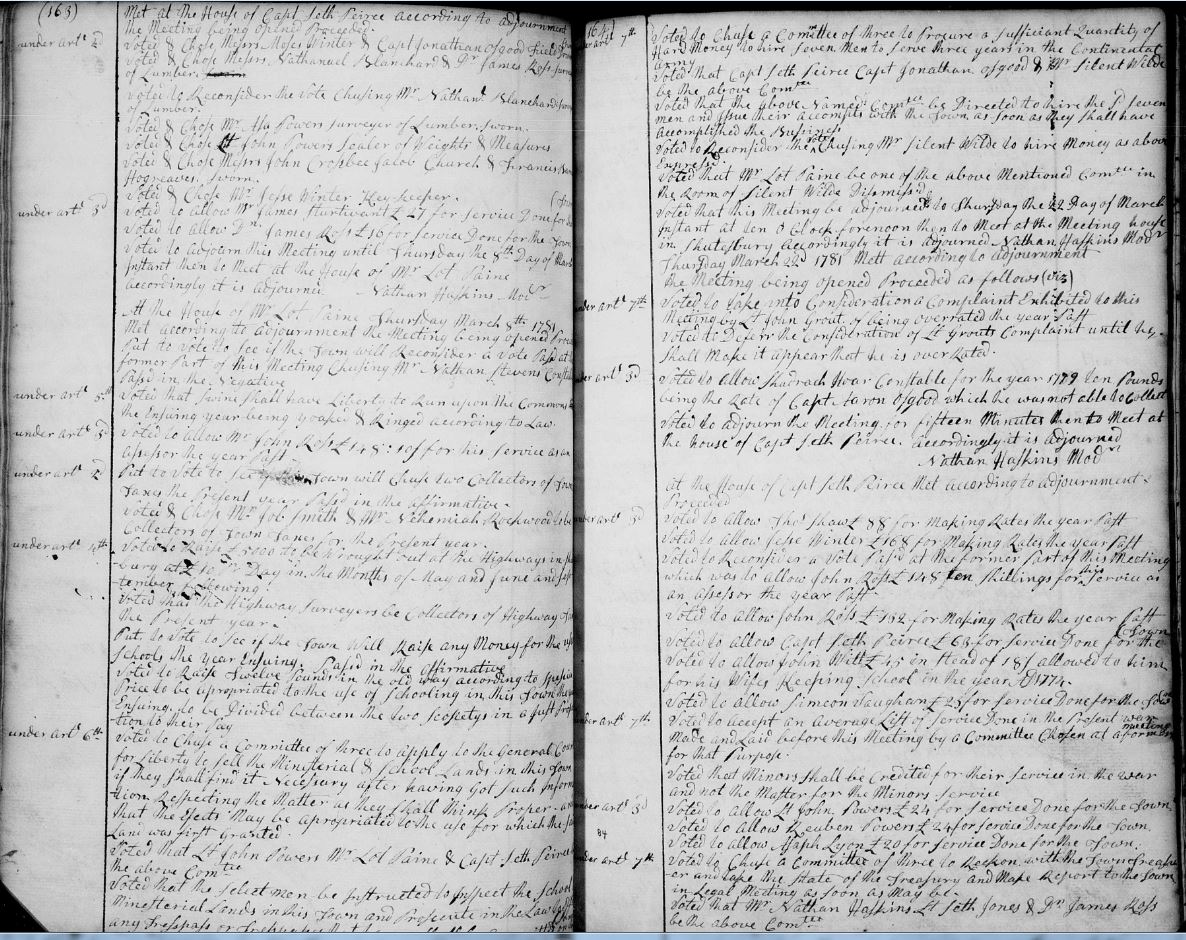 (163)
Met at the House of Capt Seth Peirce according to adjournment
the Meeting being opened Proceeded
under artl 2d
Voted & Chose Messrs Moses Winter & Capt Jonathan Osgood Field
Voted & Chose Messrs Nathanael Blanchard & Dn James Ross
of Lumber
Voted to Reconsider the Vote Chusing Mr Nathanl Blanchard
of Lumber
Voted & Chose Mr Asa Powers surveyer of Lumber, sworn.
Voted & Chose Lt John Powers Sealer of Weights & Measures
Voted & Chose Messrs John Crosbee Jacob Church & Francis
Hogreaves. sworn.
Voted & Chose Mr Jesse Winter Key keeper.
under artl 3d
Voted to allow Mr James Sturtivant £27 for service Done for
Voted to allow Dn James Ross £16 for service Done for the Town
Voted to adjorn this Meeting until Thursday the 8th Day of March
Instant then to Meet at the House of Mr Lot Paine
accordingly it is adjourned Nathan Haskins Modr
At the House of Mr Lot Paine Thursday March 8th 1781
Met according to adjournment the Meeting being opened
Put to vote to see if the Town will Reconsider a Vote Pass'd at
former Part of this Meeting Chusing Mr Nathan Stevens
Pass'd in the Negative
under artl 5th
Voted that Swine shall have Liberty to Run upon the Commons
the Ensuing year being yoaked & Ringed according to Law
under artl 3d
Voted to allow Mr John Ross £148:10s for his service as an
assessor the year Past
under artl 2d
Put to Vote to see Town will Chuse two Collectors of
Taxes the Present year Pass'd in the affirmative.
Voted & Chose Mr Job Smith & Mr Nehemiah Rockwood to be
Collectors of Town Taxes for the Present year.
under artl 4th
Voted to Raise £5000 to be wrought out at the Highways in
Day in the Months of May and June and
tember following.
Voted that the Highway Surveyers be Collectors of Highway
the Present year.
Put to Vote to see if the Town Will Raise any Money for the use
Schools the year Ensuing. Pass'd in the Affirmative
Voted to Raise Twelve Pounds in the old way according to
Price to be apropriated to the use of schooling in this Town
Ensuing, to be Divided between the two in a just
-tion to their Pay
under artl 6th
Voted to Chuse a Committee of three to apply to the General
for Liberty to sell the Ministerial & School Lands in this Town
if they shall find it Necessary after having got such
-tion Respecting the Matter as they shall think Proper
that the May be apropriated to the use for which the
Land was first Granted.
Voted that Lt John Powers Mr Lot Paine & Capt Seth Peirce
the above Comtee
Voted that the select men be Instructed to Inspect the School
Ministerial Lands in this Town and Prosecute in the Law
any Tresspass or
164
under artl 7th
Voted to Chuse a Comittee of three to Procure a sufficiant Quantity of
Hard Money to hire seven Men to serve three years in the Continental
army
Voted that Capt Seth Peirce Capt Jonathan Osgood & Mr Silent Wilde
be the above Comtee
Voted that the above Named Comtee be Directed to hire the sd seven
men and Issue their accompts with the Town as soon as they shall have
accomplished the Bussiness
Voted to Reconsider the Vote Chusing Mr Silent Wilde to hire Money as above
Expressd
Voted that Mr Lot Paine be one of the above Mentioned Comtee in
the Room of Silent Wilde Dismissd
Voted that this Meeting be adjourned to Thursday the 22 Day of March
Instant at ten o Clock forenoon then to Meet at the Meeting house
in Shutesbury accordingly it is adjorned Nathan Haskins Modr
Thursday March 22d 1781 Mett according to adjournment
the Meeting being opened Proceeded as follows (viz)
under artl 7th
Voted to take into Consideration a Complaint Exhibited to this
Meeting by Lt John Grout of being overrated the year Past
Voted to Deferr the Consideration of Lt Grouts Complaint until he
shall Make it appear that he is over Rated.
under artl 3d
Voted to allow Shadrach Hoar Constable for the year 1779 ten Pounds
being the Rate of Capt Aaron Osgood which he was not able to Collect
Voted to adjourn the Meeting for fifteen Minutes then to Meet at
the house of Capt Seth Peirce. accordingly it is adjourned
Nathan Haskins Modr
At the House of Capt Seth Peirce Met according to adjournment
Proceeded
under artl 3d
Voted to allow Thos Shaw £88 for Making Rates the year Past
Voted to allow Jesse Winter £168 for Making Rates the year Past
Voted to Reconsider a Vote Pass'd at the former Part of this Meeting
which was to allow John Ross £148 ten shillings for his service as
an assessor the year Past
Voted to allow John Ross £152 for Making Rates the year Past
Voted to allow Capt Seth Peirce £63 for service Done for the
Town
Voted to allow John Witt £45 in stead of 18s allowed to him
for his Wifes Keeping School in the year AD 1774
Voted to allow Simeon Vaughan £25 for service Done for the Town
under artl 7th
Voted to accept an Average List of service Done in the Present war
Made and Laid before this Meeting by a Committee Chosen at a former
meeting
for that Purpose.
Voted that Minors shall be Credited for their service in the war
and not the Master for the Minors service
under artl 3d
Voted to allow Lt John Powers £24 for service Done for the Town
84
Voted to allow Reuben Powers £24 for service Done for the Town
Voted to allow Asaph Lyon £20 for service Done for the Town.
under artl 7th
Voted to Chuse a Committee of three to Reckon with the Town Treasur
-er and take the State of the Treasury and Make Report to the Town
in Legal Meeting as soon as May be.
Voted that Mr Nathan Haskins Lt Seth Jones & Dn James Ross
be the above Comtee